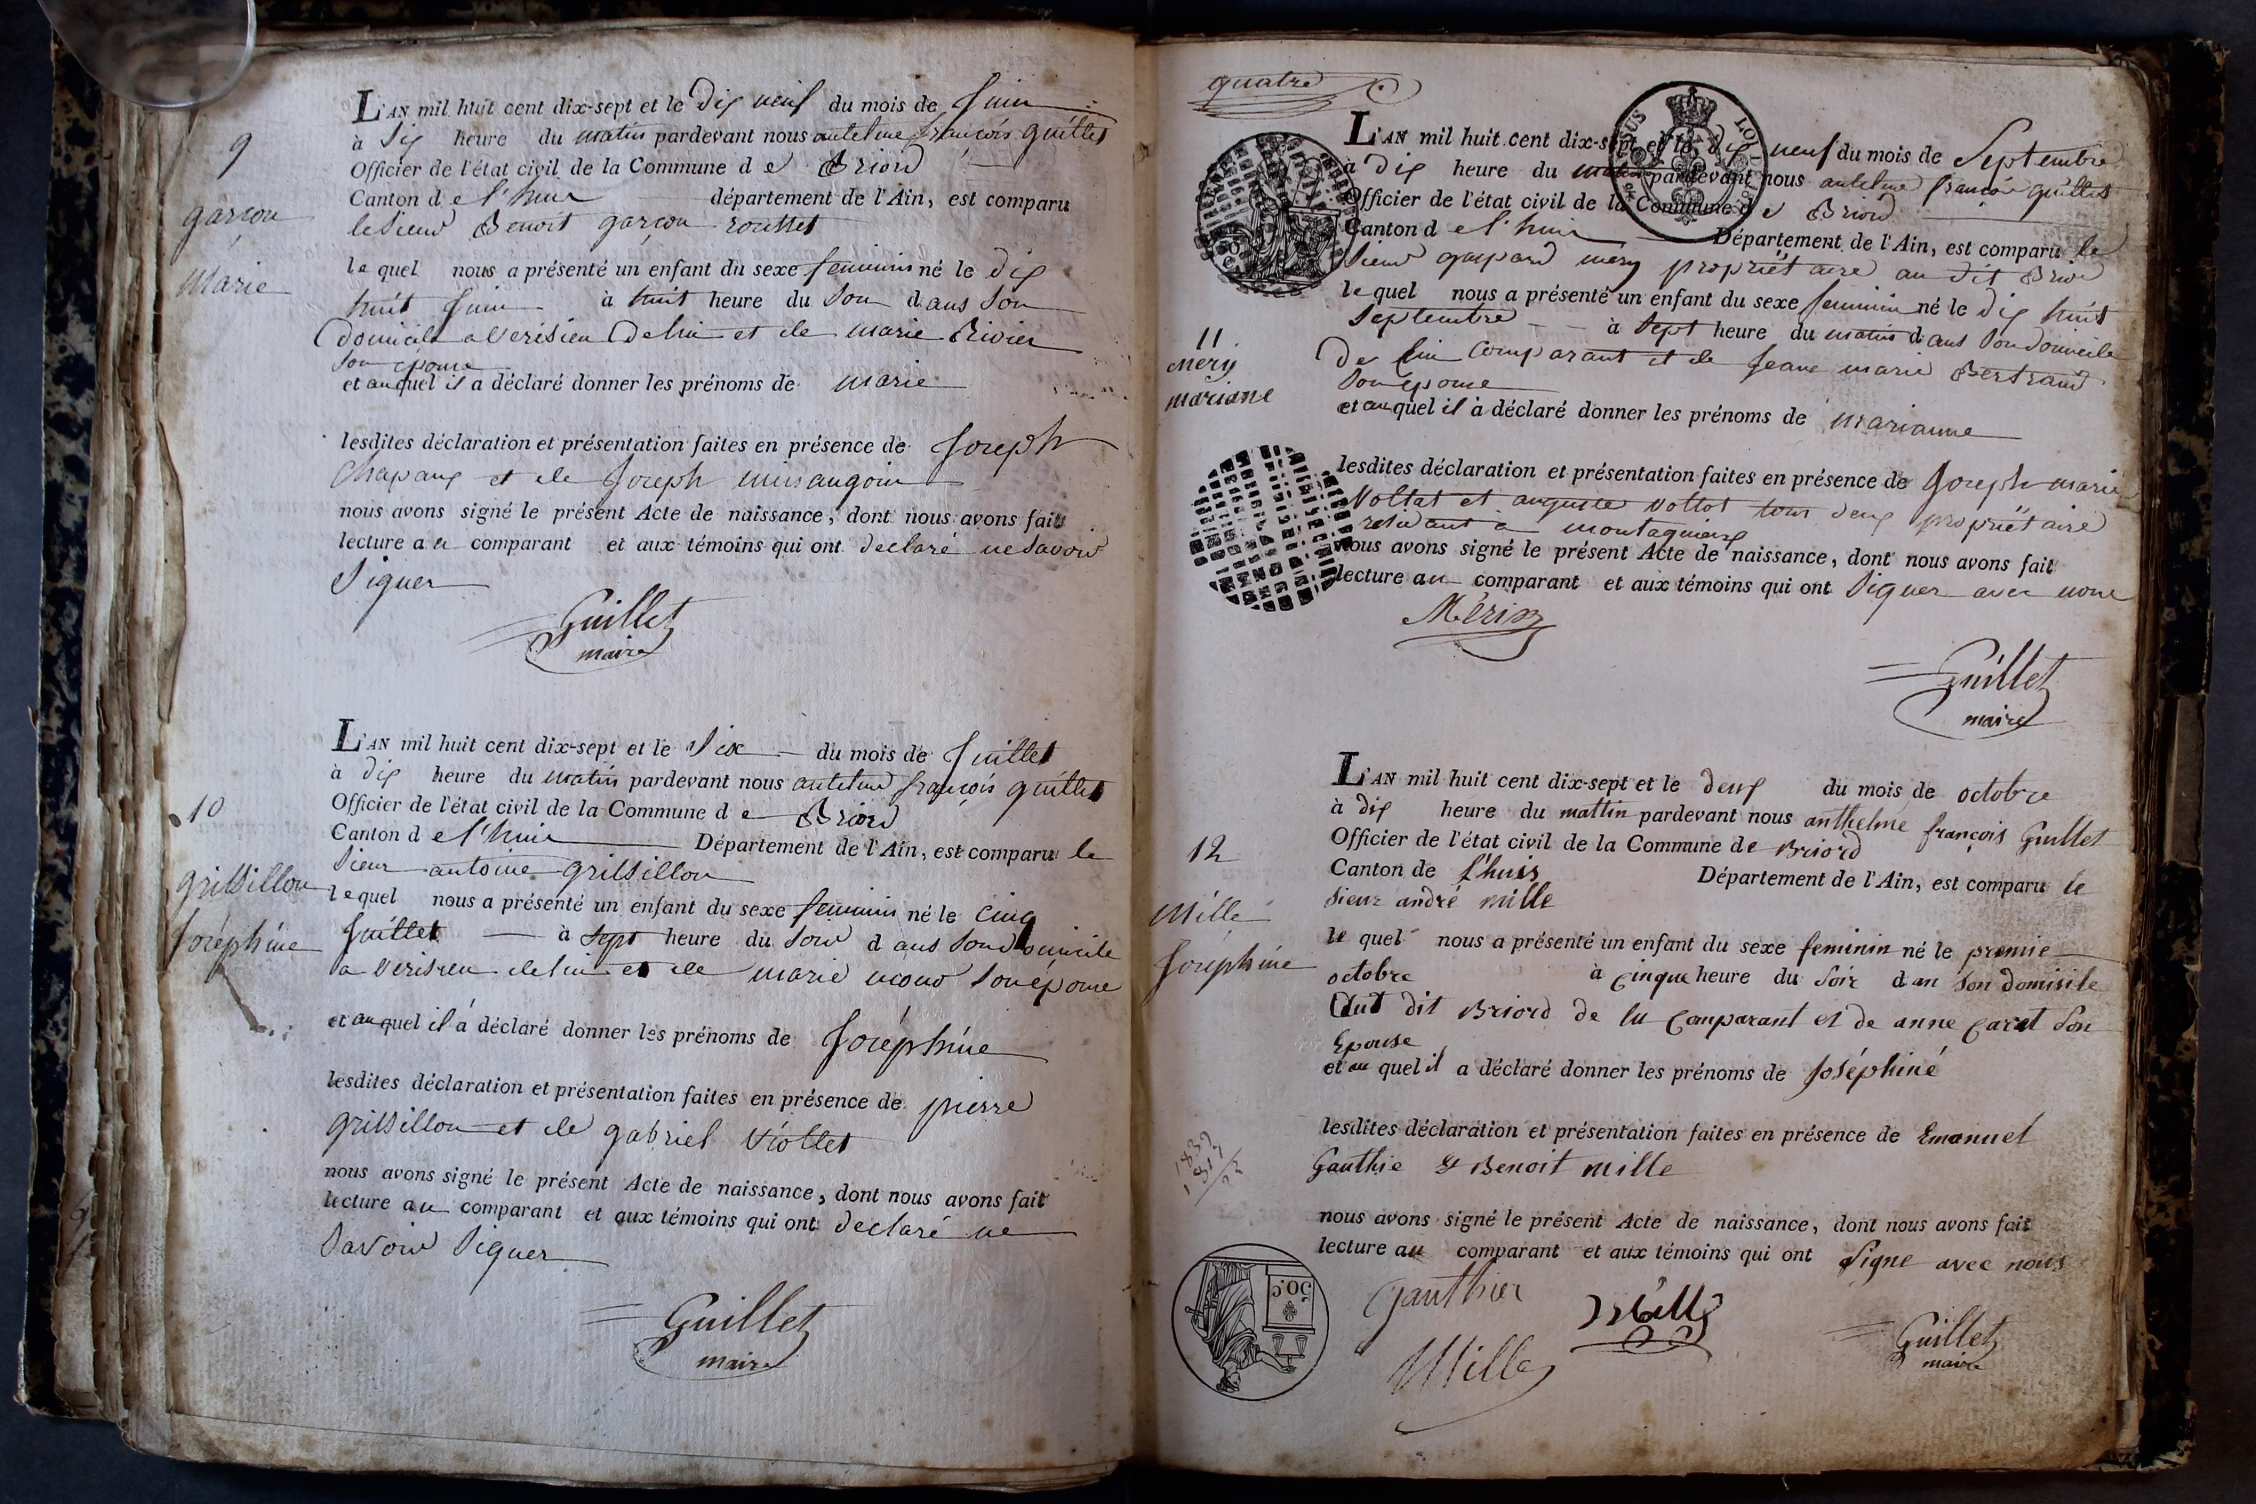 9
garçon
marie
L'AN mil huit cent dix-sept et le dix neuf du mois de Juin
à dix heure du matin pardevant nous antelme françois guillet
Officier de l'état civil de la Commune d e Briord
Canton d e l'huis département de l'Ain, est comparu
le sieur Benoit garçon rousset
le quel nous a présenté un enfant du sexe feminin né le dix
huit Juin à huit heure du soir dans son
domicile a verisieu de lui et de marie Rivier
son épouse
et auquel il a déclaré donner les prénoms de marie
lesdites déclaration et présentation faites en présence de Joseph
Chapaux et de Joseph
nous avons signé le présent Acte de naissance, dont nous avons fait
lecture au comparant et aux témoins qui ont declaré ne savoir
signer
Guillet
maire
10
grissillon
Joséphine
L'AN mil huit cent dix-sept et le six du mois de Juillet
à dix heure du matin pardevant nous antelme françois guillet
Officier de l'état civil de la Commune d e Briord
Canton d e l'huis Département de l'Ain, est comparu le
sieur antoine grissillon
lequel nous a présenté un enfant du sexe feminin né le cinq
Juillet à sept heure du soir dans son domicile
a verisieu de lui et de marie son épouse
et auquel il a déclaré donner les prénoms de Joséphine
lesdites déclaration et présentation faites en présence de pierre
grissillon et de gabriel viollet
nous avons signé le présent Acte de naissance, dont nous avons fait
lecture au comparant et aux témoins qui ont declaré ne
savoir signer
Guillet
maire
quatre
11
Méry
mariane
L'AN mil huit cent dix-sept et le dix neuf du mois de Septembre
à dix heure du matin pardevant nous antelme françois guillet
Officier de l'état civil de la Commune d e Briord
Canton d e l'huis Département de l'Ain, est comparu le
sieur gaspard mery propriétaire au dit Briord
lequel nous a présenté un enfant du sexe feminin né le dix huit
septembre à sept heure du matin dans son domicile
de lui comparant et de Jeane marie Bertrand
son épouse
et auquel il à déclaré donner les prénoms de marianne
lesdites déclaration et présentation faites en présence de Joseph marie
vottat et auguste vottot tous deux propriétaire
residant à montagnieux
nous avons signé le présent Acte de naissance, dont nous avons fait
lecture au comparant et aux témoins qui ont signer avec nous
Guillet
maire
12
Mille
Joséphine
L'AN mil huit cent dix-sept et le deux du mois de octobre
à dix heure du mattin pardevant nous anthelme françois Guillet
Officier de l'état civil de la Commune de Briord
Canton de l'huis Département de l'Ain, est comparu le
sieur andré mille
le quel nous a présenté un enfant du sexe feminin né le premie
octobre à cinque heure du soir dan son domisile
Aut dit Briord de lu comparant et de anne caret son
Epouse
et au quel il a déclaré donner les prénoms de Joséphiné
lesdites déclaration et présentation faites en présence de Emanuel
Gauthie & Benoit mille
nous avons signé le présent Acte de naissance, dont nous avons fait
lecture au comparant et aux témoins qui ont signe avec nous
1839
1817
22
50 C.
Gauthier
Mille
Mille
Guillet
maire